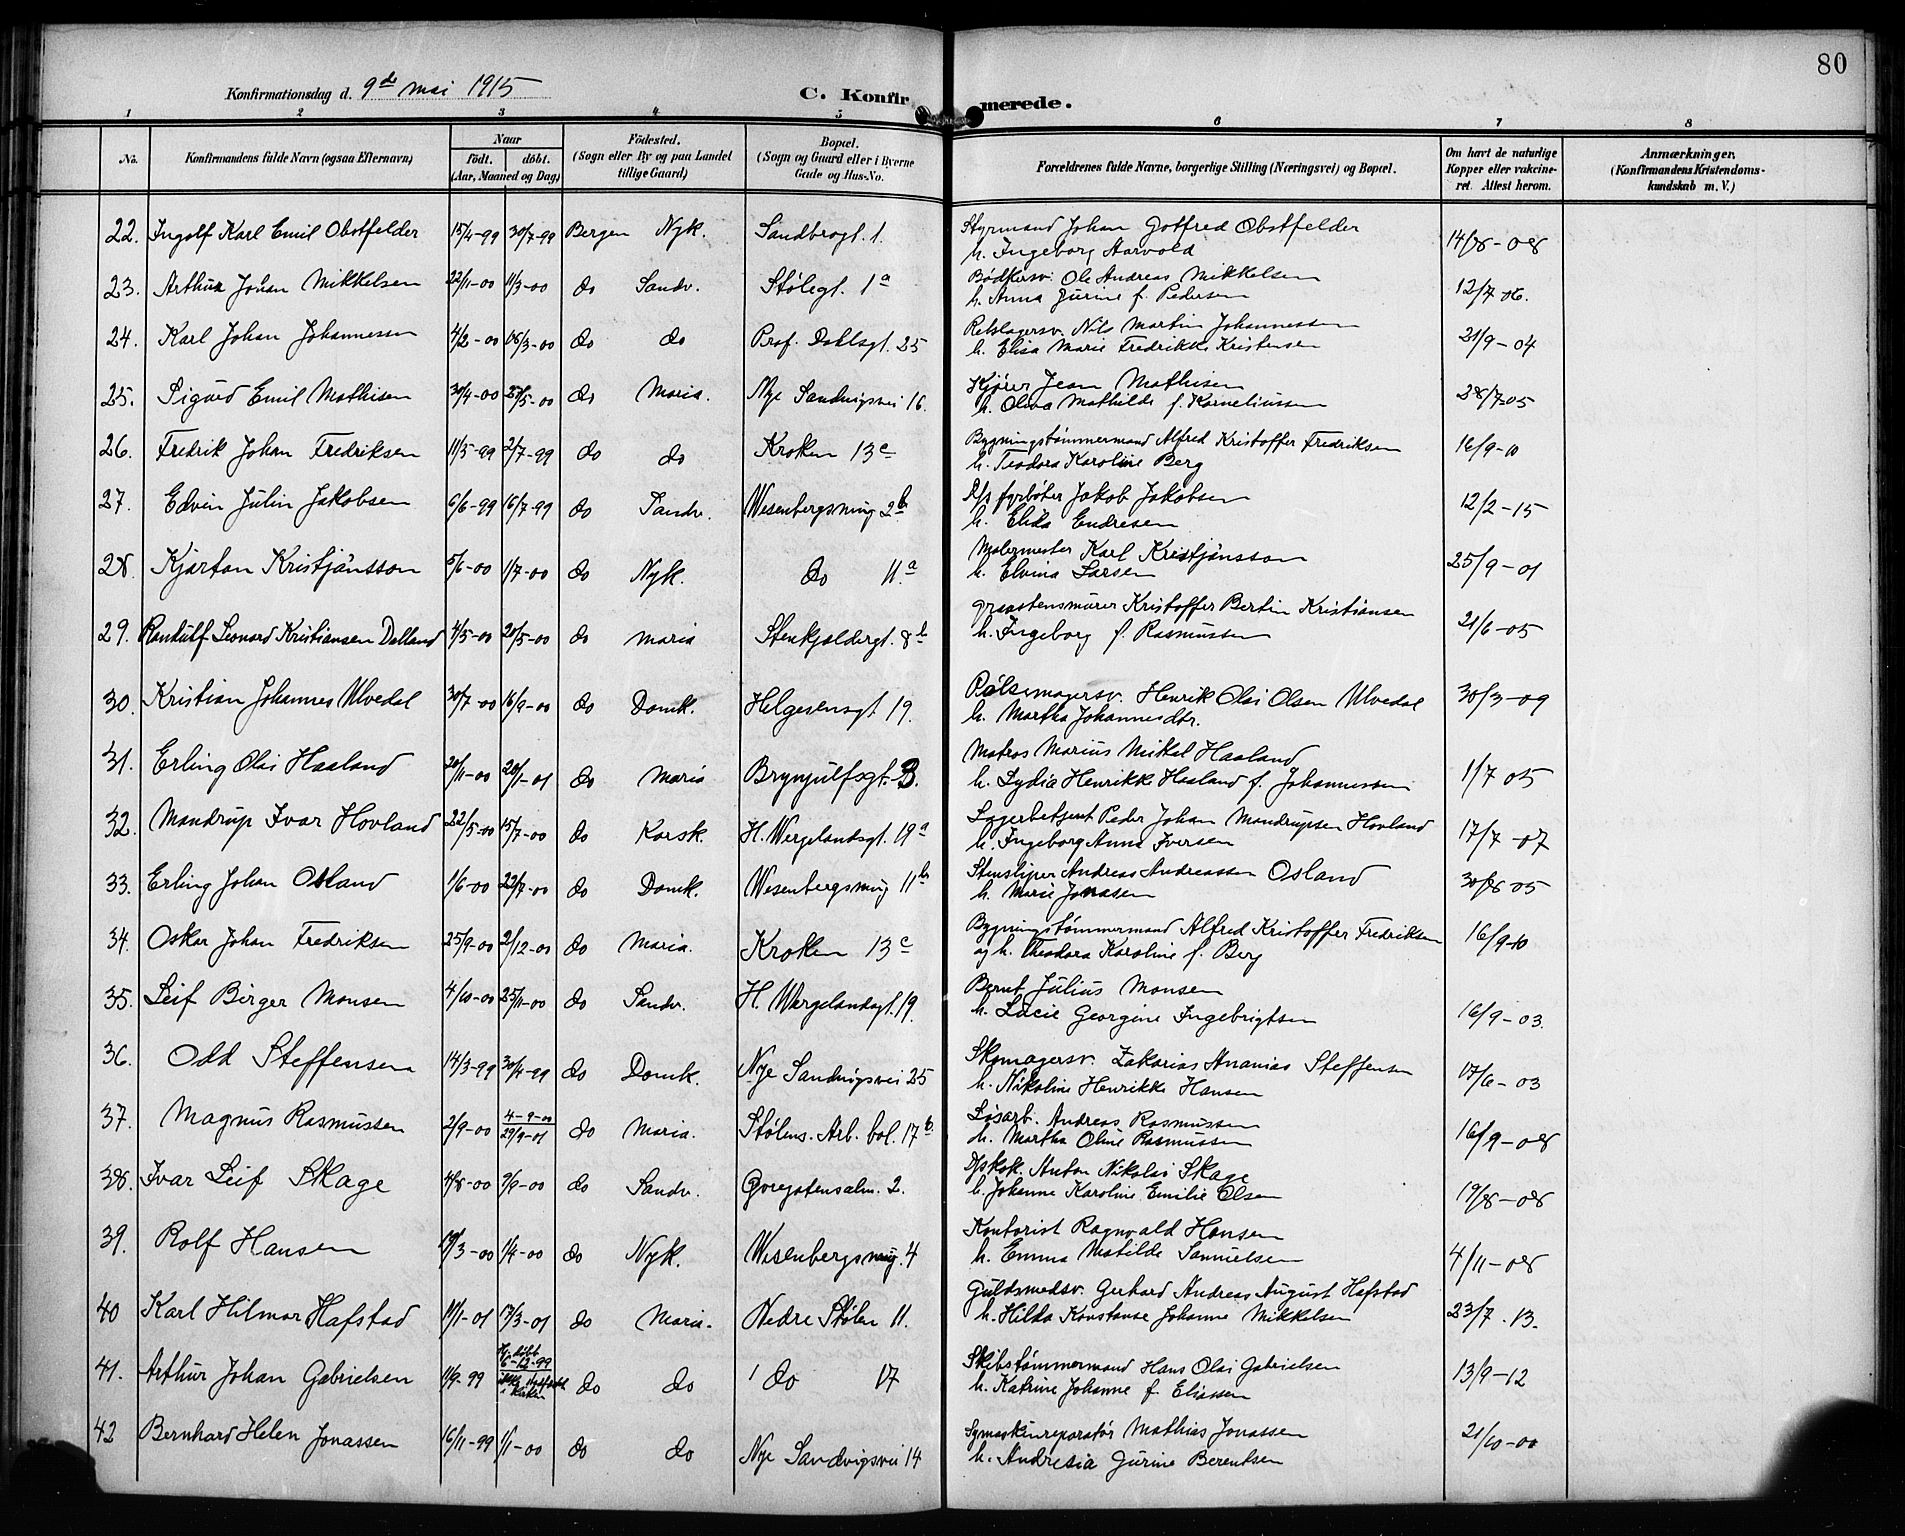 80
Konfirmationsdag d. 9de mai 1915
C. Konfirmerede.
1 2 3 4 5 6 7 8
No. Konfirmandens fulde Navn (ogsaa Efternavn) Naar født. døbt. (Aar, Maaned og Dag) Födested. (Sogn eller By og paa Landet tillige Gaard) Bopæl. (Sogn og Gaard eller i Byerne Gade og Hus-No. Forældrenes fulde Navne, borgerlige Stilling (Næringsvei) og Bopæl. Om havt de naturlige Kopper eller vakcineret. Attest herom. Anmærkninger. (Konfirmandens Kristendomskundskab m. V.)
22. Ingolf Karl Emil Obstfelder 15/4-99 30/7-99 Bergen Nyk. Sandbrogt. 1. Styrmand Johan Gotfred Obstfelder 14/8-08
h. Ingeborg Aarvold
23. Arthur Johan Mikkelsen 22/11-00 11/3-00 do Sandv. Stølegt. 1a Bødkersv. Ole Andreas Mikkelsen 12/7 06.
h. Anna Jurine f. Pedersen
24. Karl Johan Johannessen 4/2-00 /3-00 do do Prof. Dahlsgt. 25 Rebslagersv. Nils Martin Johannessen 21/9-04
h. Elisa Marie Fredrikke Kristensen
25. Sigurd Emil Mathisen 30/4-00 27/5-00 do Maria. Nye Sandvigsvei 16. Kjører Jean Mathisen 28/7 05
h. Oliva Mathilde f. Korneliussen
26. Fredrik Johan Fredriksen 11/5-99 2/7-99 do do Kroken 13c Bygningstømmermand Alfred Kristoffer Fredriksen 16/9-10
h. Teodora Karoline Berg
27. Edvin Julin Jakobsen 6/6-99 16/7-99 do Sandv. Wesenbergsmug 2b D/s fyrbøter Jakob Jakobsen 12/2-15
h. Elida Endresen
28. Kjartan Kristjánsson 5/6-00 1/7-00 do Nyk. do 11.a Malermester Karl Kristjánsson 25/9-01
h. Elvina Larsen
29. Randulf Leonard Kristiansen Dalland 4/5-00 20/5-00 do Maria Stenkjeldergt. 8b Graastensmurer Kristoffer Bertin Kristiansen 21/6-05
h. Ingeborg f. Rasmussen
30. Kristian Johannes Ulvedal 30/7-00 16/9-00 do Domk. Helgesensgt 19. Pølsemagersv. Henrik Olai Olsen Ulvedal 30/3-09
h. Martha Johannesdtr.
31. Erling Olai Haaland 20/11-00 20/1-01 do Maria Brynjulfsgt. 3. Matros Marius Mikal Haaland 1/7 05
h. Lydia Henrikke Haaland f. Johannessen
32. Mandrup Ivar Hovland 22/5-00 15/7-00 do Korsk. H. Wergelandsgt. 19a Lagerbetjent Peder Johan Mandrupsen Hovland 17/7-07
h. Ingeborg Anna Iversen
33. Erling Johan Osland 1/6-00 22/7-00 do Domk. Wesenbergsmug 11b Stensliper Andreas Andreassen Osland 30/8 05
h. Marie Jonasen
34. Oskar Johan Fredriksen 25/9-00 2/12-00 do Maria. Kroken 13c Bygningstømmermand Alfred Kristoffer Fredriksen 16/9-10
og h. Theodora Karoline f. Berg
35. Leif Birger Monsen 4/10-00 25/11-00 do Sandv. H. Wergelandsgt. 19. Bernt Julius Monsen 16/9-03.
h. Lucie Georgine Ingebrigtsen
36. Odd Steffensen 14/3-99 30/4-99 do Domk. Nye Sandvigsvei 25 Skomagersv. Zakarias Ananias Steffensen 17/6-03
h. Nikoline Henrikke Hansen
37. Magnus Rasmussen 2/9-00 4-9-00 29/9-01 do Maria. Stølens Arb. bol. 17b Løsarb. Andreas Rasmussen 16/9-08
h. Martha Oline Rasmussen
38. Ivar Leif Skage 4/8-00 9/9-00 do Sandv. Øvregatensalm. 2. D/skok. Anton Nikolai Skage 19/8-08
h. Johanne Karoline Emilie Olsen
39. Rolf Hansen /3-00 1/4-00 do Nyk. Wesenbergsmug. 4 Kontorist Ragnvald Hansen 4/11-08
h. Emma Matilde Samuelsen
40 Karl Hilmar Hafstad 11/1-01 17/3-01 do Maria. Nedre Stølen 11. Guldsmedsv. Gerhard Andreas August Hafstad 23/7.13.
h. Hilda Konstanse Johanne Mikkelsen
41. Arthur Johan Gabrielsen 11/9-99 Hj. døbt 6-12-99 ikke stadfæstet i kirken do do do 17 Skibstømmermand Hans Olai Gabrielsen 13/9-12
h. Katrine Johanne f. Eliassen
42 Bernhard Helen Jonassen 16/11-99 1/1-00 do do Nye Sandvigsvei 14 Symaskinreparatør Mathias Jonassen 21/10-00
h. Andresia Jurine Berentsen